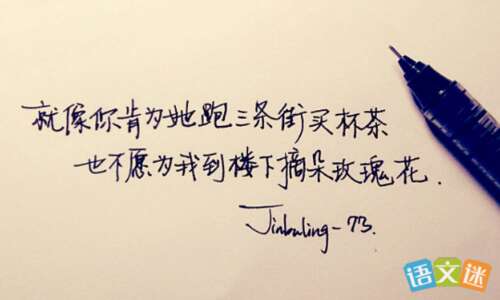 就像你肯为她跑三条街买杯茶
也不愿为我到楼下摘朵玫瑰花.
Jinbuling-73.
语文迷